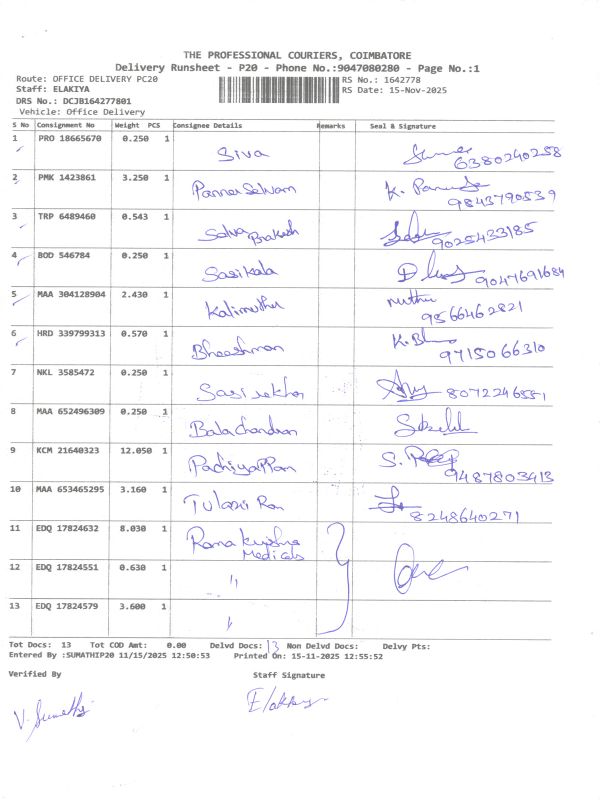 THE PROFESSIONAL COURIERS, COIMBATORE
Delivery Runsheet - P20 - Phone No.:9047080280 - Page No.:1
Route: OFFICE DELIVERY PC20 RS No.: 1642778
Staff: ELAKIYA RS Date: 15-Nov-2025
DRS No.: DCJB164277801
Vehicle: Office Delivery
S No Consignment No Weight PCS Consignee Details Remarks Seal & Signature
1 PRO 18665670 0.250 1 Siva 6380240258
2 PMK 1423861 3.250 1 Panner Selvam K. 9843790539
3 TRP 6489460 0.543 1 Selva Prakash 9025433185
4 BOD 546784 0.250 1 Sasikala 9047691684
5 MAA 304128904 2.430 1 Kalimuthu muthu 9566462821
6 HRD 339799313 0.570 1 Bheeshman 9715066310
7 NKL 3585472 0.250 1 Sasi sekhar 8072246551
8 MAA 652496309 0.250 1 Bala Chandran
9 KCM 21640323 12.050 1 Pachiyappan S. 9487803413
10 MAA 653465295 3.160 1 Tulasi Ram 8248640271
11 EDQ 17824632 8.030 1 Rama Krishna
Medicals
12 EDQ 17824551 0.630 1 "
13 EDQ 17824579 3.600 1
Tot Docs: 13 Tot COD Amt: 0.00 Delvd Docs: 13 Non Delvd Docs: Delvy Pts:
Entered By :SUMATHIP20 11/15/2025 12:50:53 Printed On: 15-11-2025 12:55:52
Verified By Staff Signature
V. Sumathi